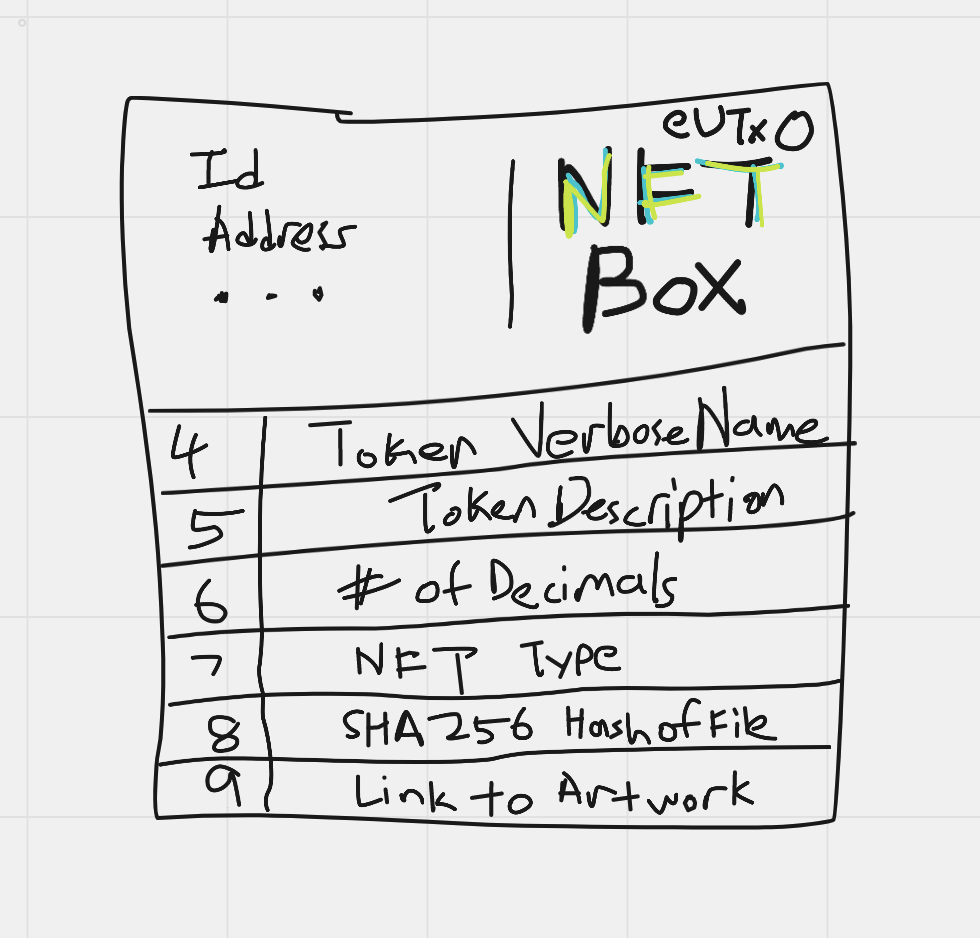 eUTxO
Id
Address
...
NFT
Box
4 Token VerboseName
5 Token Description
6 # of Decimals
7 NFT Type
8 SHA256 Hash of File
9 Link to Artwork